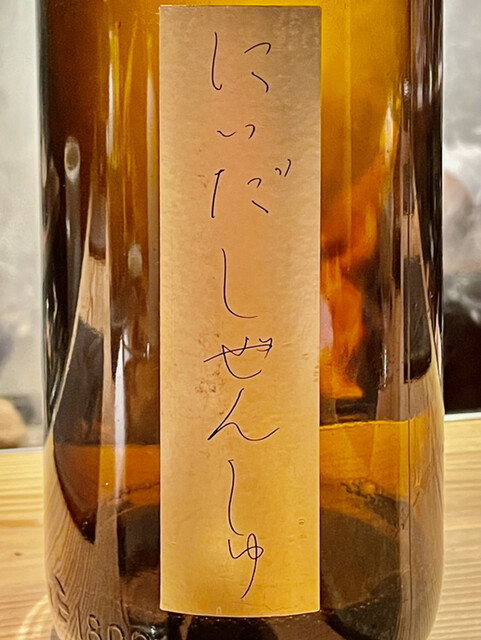 にいだしぜんしゅ
180